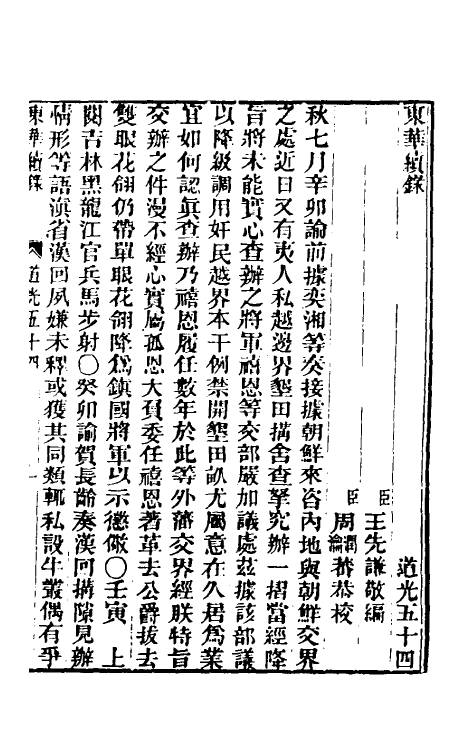 東華續錄 道光五十四
臣王先謙敬編
臣周潤蕃周瀹蕃恭校
秋七月辛卯諭前據奕湘等奏接據朝鮮來咨內地與朝鮮交界
之處近日又有夷人私越邊界墾田搆舍查拏究辦一摺當經降
旨將未能實心查辦之將軍禧恩等交部嚴加議處茲據該部議
以降級調用奸民越界本干例禁開墾田畝尤屬意在久居爲業
宜如何認眞查辦乃禧恩履任數年於此等外藩交界經朕特旨
交辦之件漫不經心實屬孤恩大負委任禧恩著革去公爵拔去
雙眼花翎仍帶單眼花翎降爲鎮國將軍以示懲儆〇壬寅 上
閱吉林黑龍江官兵馬步射〇癸卯諭賀長齡奏漢回搆隙見辦
情形等語滇省漢回夙嫌未釋或獲其同類輒私設牛叢偶有爭
東華續錄 道光五十四 一